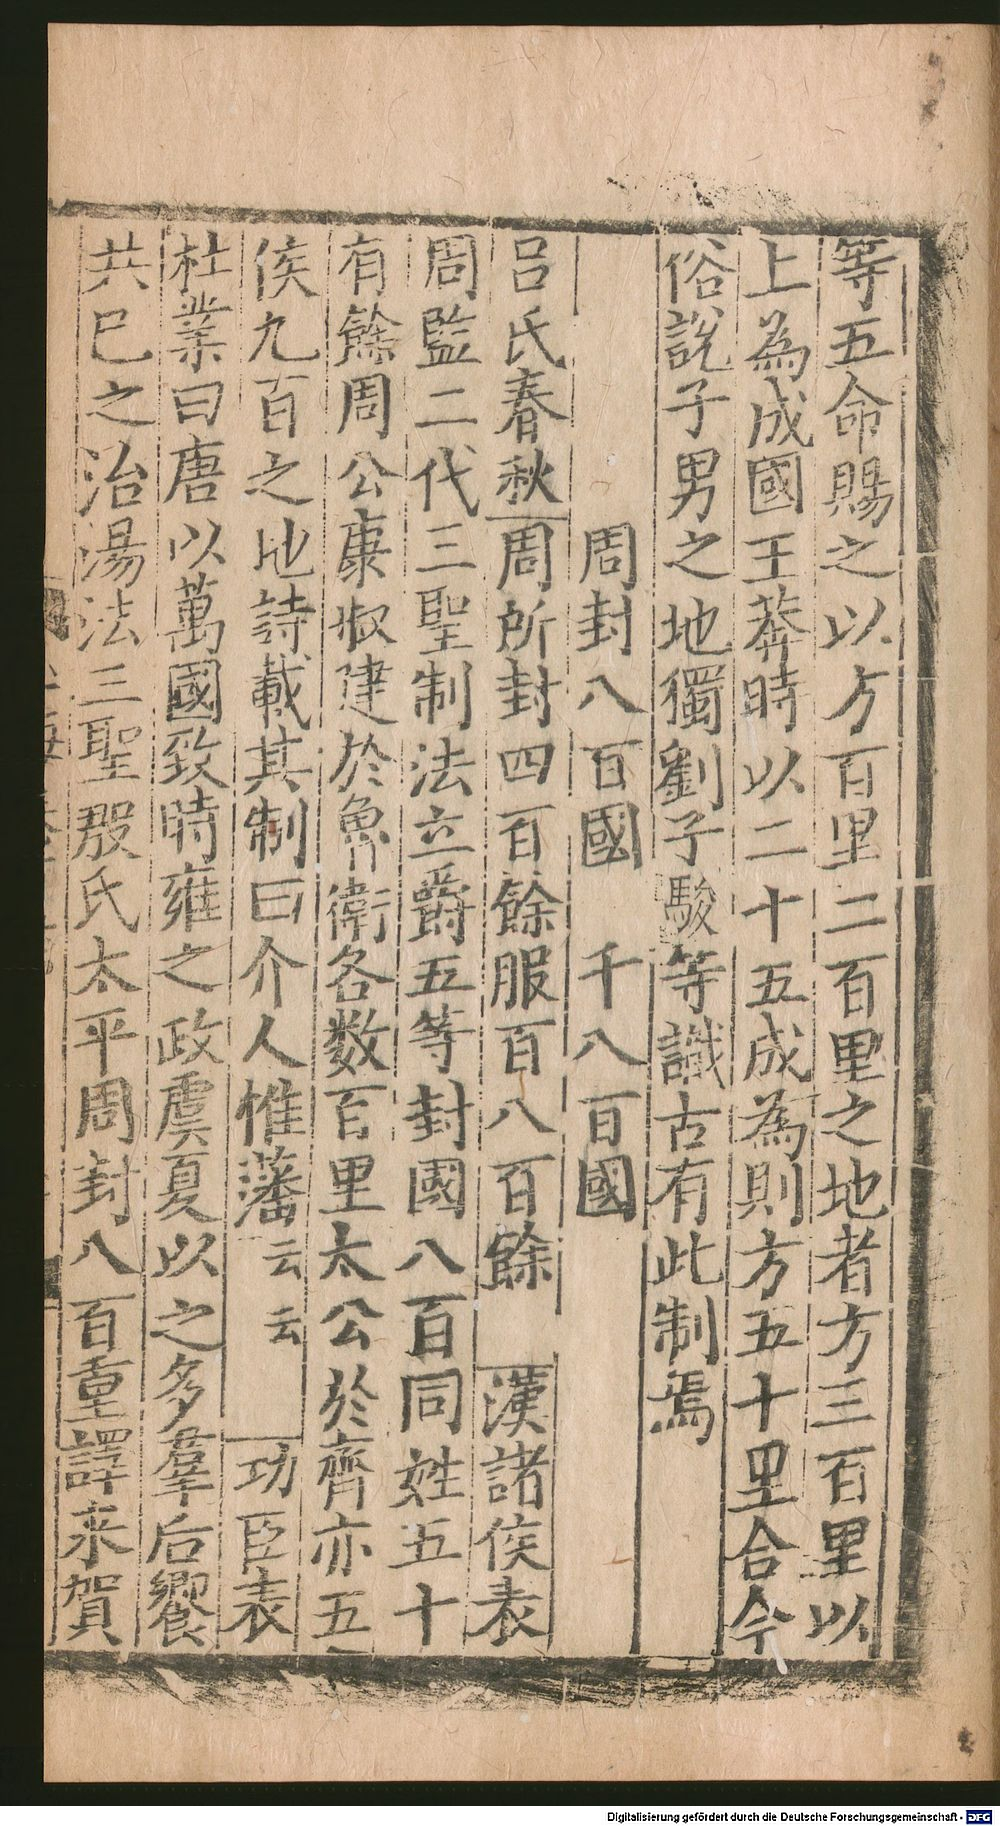 等五命賜之以方百里二百里之地者方三百里以
上為成國王莽時以二十五成為則方五十里合今
俗說子男之地獨劉子駿等識古有此制焉
周封八百國　千八百國
呂氏春秋周所封四百餘服百八百餘　漢諸侯表
周監二代三聖制法立爵五等封國八百同姓五十
有餘周公康叔建於魯衛各数百里太公於齊亦五
侯九百之地詩載其制曰介人惟藩云云　功臣表
杜業曰唐以萬國致時雍之政虞夏以之多羣后饗
共已之治湯法三聖殷氏太平周封八百重譯来賀
Digitalisierung gefördert durch die Deutsche Forschungsgemeinschaft - DFG